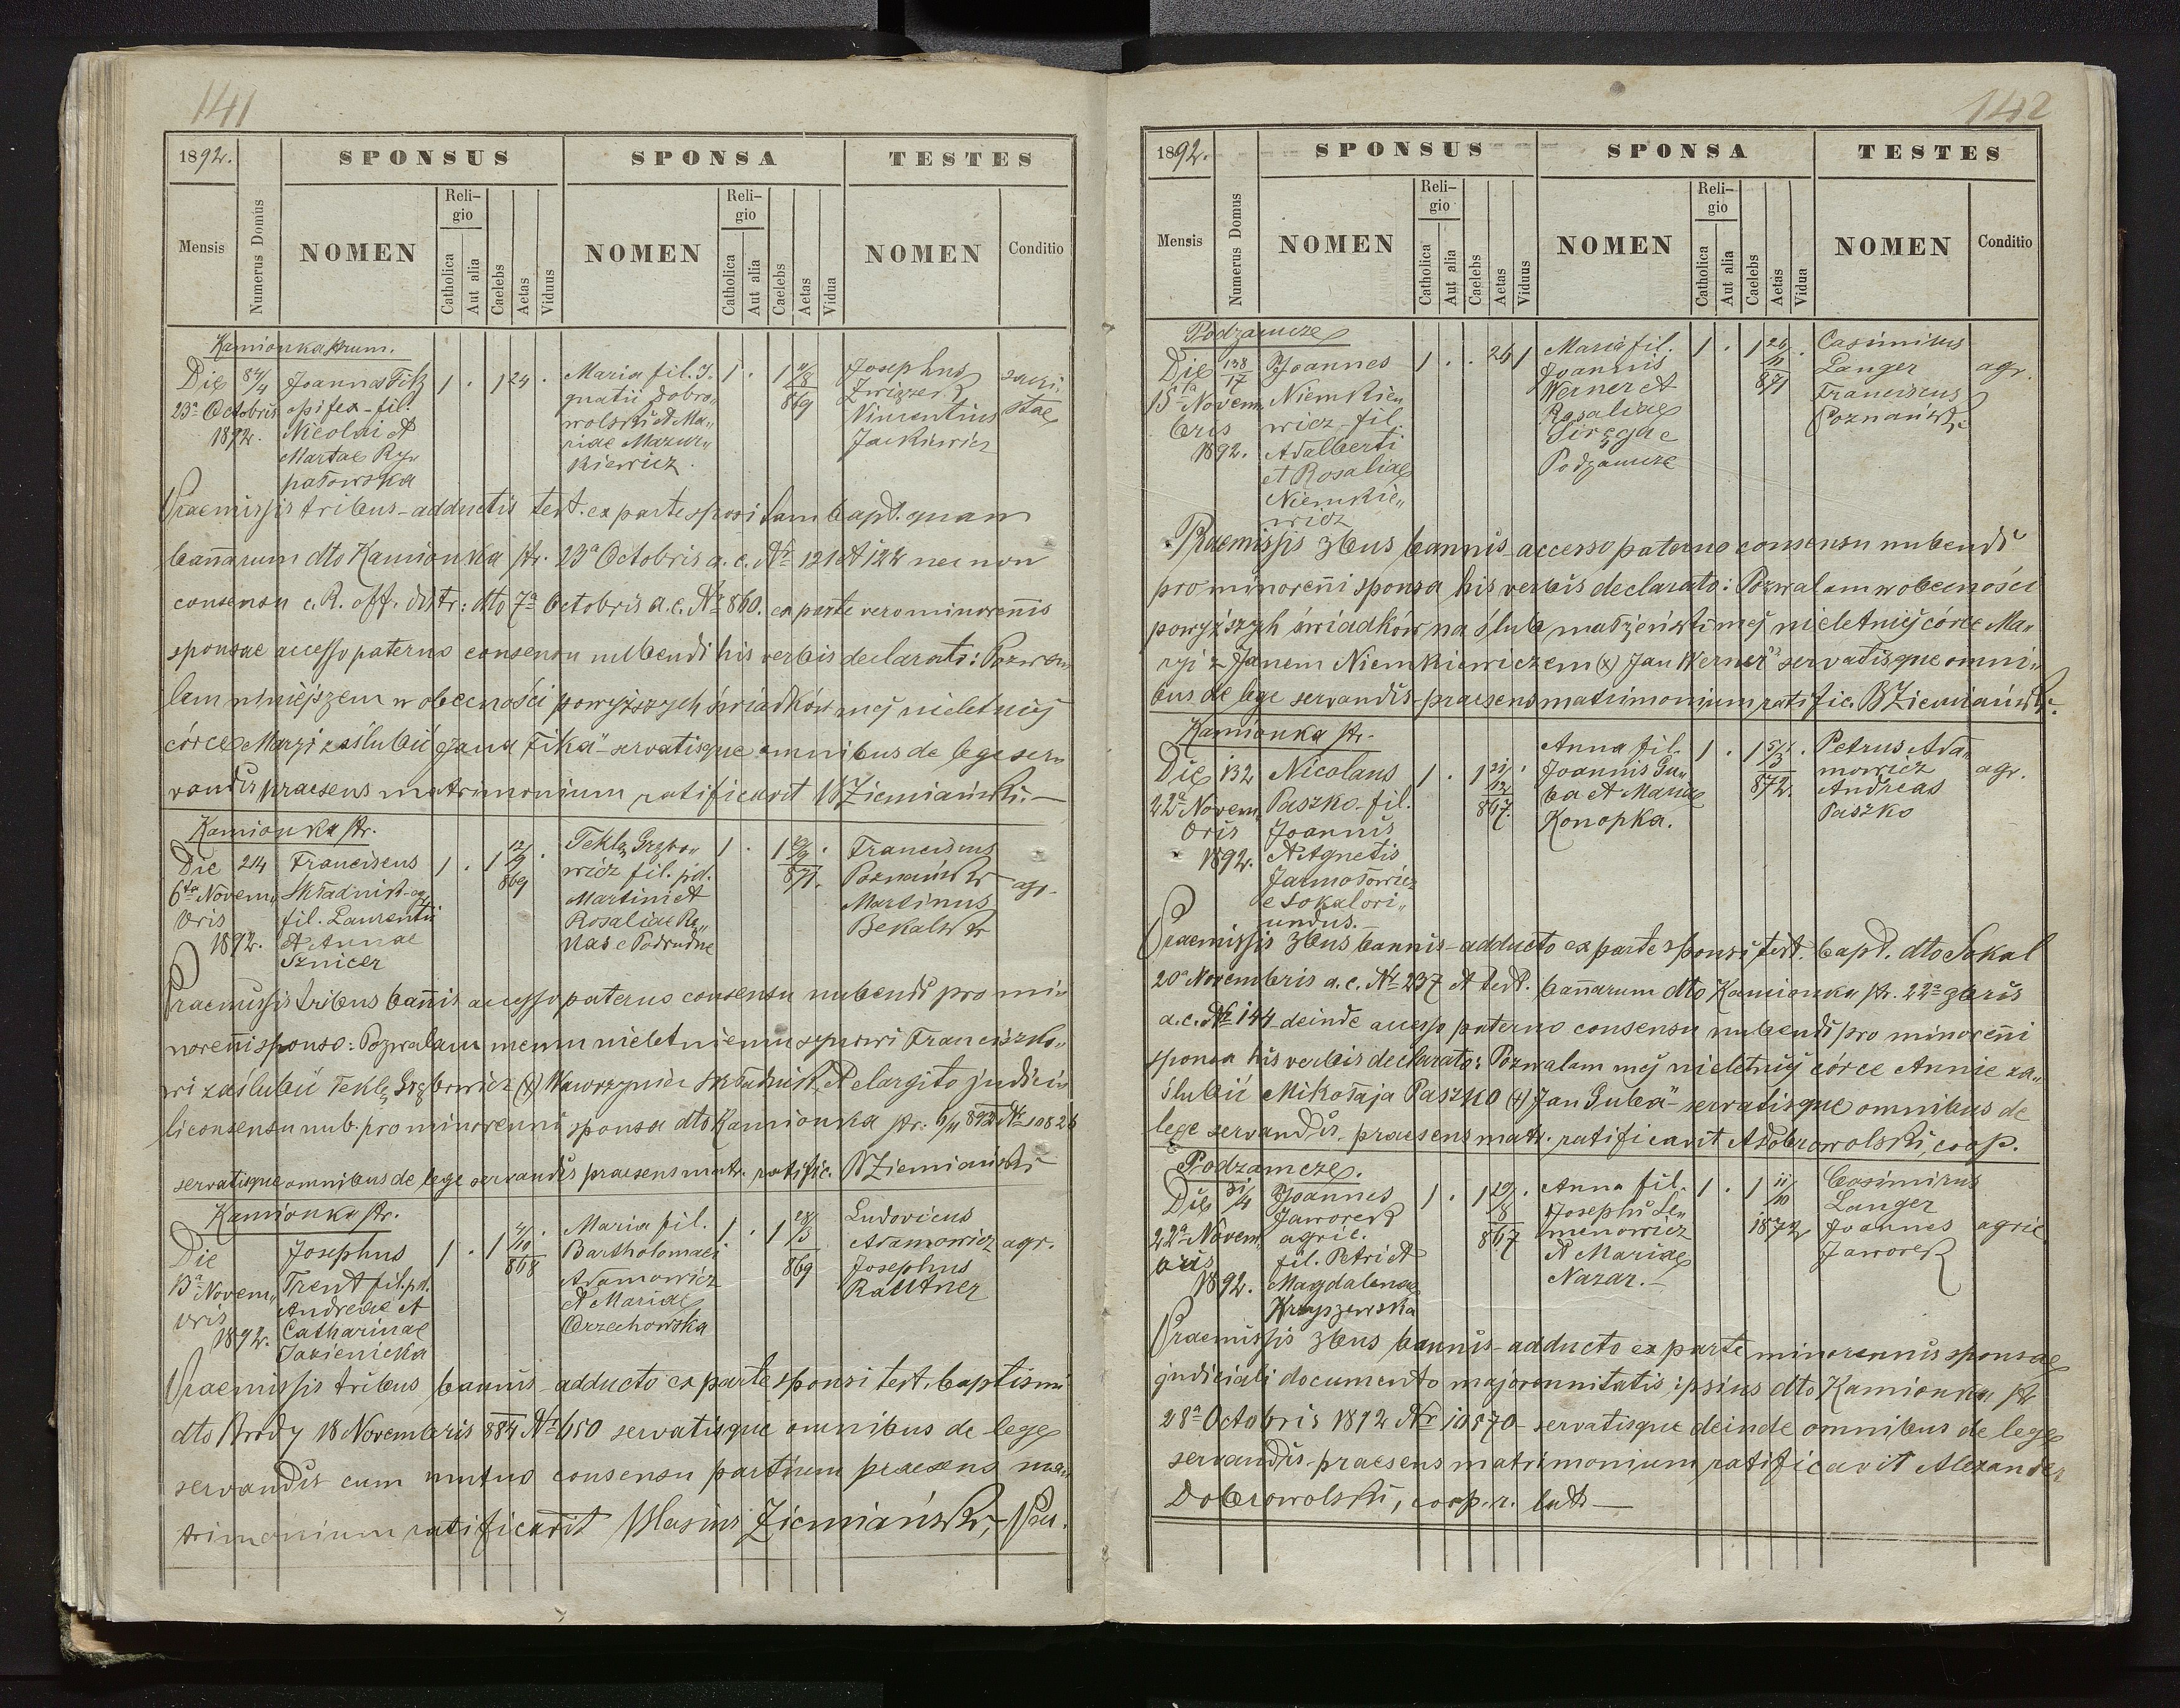 141
1892.
SPONSUS
SPONSA
TESTES
Mensis
Numerus Domus
NOMEN
Religio
Catholica
Aut alia
Caelebs
Aetas
Viduus
NOMEN
Religio
Catholica
Aut alia
Caelebs
Aetas
Vidua
NOMEN
Conditio
Kamionka strum.
Die
23a Octobris
1892.
84/4
Joannes Fitz
opifex - fil.
Nicolai et
Martae Ry„
patowska
1 . 1 24 .
Maria fil. I„
gnatii Dobro„
wolski et Ma„
riae Mazur„
kiewicz.
1 . 1
869
Josephus
Vincentius
Jackiewicz
Praemissis tribus - adductis test. ex parte sponsi tam bapt. quam
bannarum dto Kamionka str. 23a Octobris a. c. Nr 121 et 122 nec non
consensu c. R. off. distr: dto 7a Octobris a. c. Nr 860. ex parte vero minorennis
sponsae accesso paterno consensu nubendi his verbis declarato: Pozwa„
lam niniejszem w obecności powyższych świadków mej nieletniej
córce Maryi zaślubić Jana Fika" - servatisque omnibus de lege ser„
vandis praesens matrimonium ratificavit BZiemiański. —
Kamionka str.
Die
6ta Novem„
bris
1892.
214
Franciscus
Składnik - agr
fil. Laurentii
et Annae
Sznicer
1 . 1
12/9
869
Tekla Grzbo„
wicz fil. pd.
Martini et
Rosaliae Ku„
nas e Podrudne
1 . 1
871.
Franciscus
Poznański
Martinus
Bekalski
agr.
Praemissis tribus bannis accesso paterno consensu nubendi pro mi„
norenni sponso: Pozwalam memu nieletniemu synowi Franciszko„
wi zaślubić Teklę Grzbowicz (x) Wawrzyniec Składnik. Et elargito judicia„
li consensu nub. pro minorenni sponsa dto Kamionka str. 6/11 892 Nr 10826
servatisque omnibus de lege servandis praesens matr. ratific. BZiemiański
Kamionka str.
Die
13a Novem„
bris
1892.
Josephus
Trent fil. pd.
Andreae et
Catharinae
Jazienicka
1 . 1
868
Maria fil.
Bartholomaei
Adamowicz
et Mariae
Orzechowska
1 . 1
28/3
869
Ludovicus
Adamowicz
Josephus
Rautner
agr.
Praemissis tribus bannis - adducto ex parte sponsi test. baptismi
dto Brody 18 Novembris 884 Nr 650 servatisque omnibus de lege
servandis cum mutuo consensu partium praesens ma„
trimonium ratificavit Blasius Ziemiański,
142
1892.
SPONSUS
SPONSA
TESTES
Mensis
Numerus Domus
NOMEN
Religio
Catholica
Aut alia
Caelebs
Aetas
Viduus
NOMEN
Religio
Catholica
Aut alia
Caelebs
Aetas
Vidua
NOMEN
Conditio
Podzamcze
Die
15ta Novem„
bris
1892.
138/17
Joannes
Niemkie„
wicz - fil.
Adalberti
et Rosaliae
Niemkie„
wicz
1 . . 26 1
Maria fil.
Joannis
Werner et
Rosaliae
Podzamcze
1 . 1
26/11
871
Casimirus
Langer
Franciscus
Poznański
agr.
Praemissis 3bus bannis - accesso paterno consensu nubendi
pro minorenni sponsa his verbis declarato: Pozwalam w obecności
powyższych świadków na ślub małżeński mej nieletniej córce Ma„
ryi z Janem Niemkiewiczem (x) Jan Werner" servatisque omni„
bus de lege servandis - praesens matrimonium ratific. BZiemiański.
Kamionka str.
Die
22a Novem
bris
1892.
132
Nicolaus
Paszko - fil.
Joannis
et Agnetis
Jarmołowicz
e Sokal ori„
undus.
1 . 1
21/12
867.
Anna fil.
Joannis Gu„
ba et Mariae
Konopka.
1 . 1
5/3
872.
Petrus Ada„
mowicz
Andreas
Paszko
agr.
Praemissis 3bus bannis - adducto ex parte sponsi test. bapt. dto Sokal
20a Novembris a. c. Nr 237 et test. bannarum dto Kamionka str. 22a 9bris
a. c. Nr 144 - deinde accesso paterno consensu nubendi pro minorenni
sponsa his verbis declarato: Pozwalam mej nieletniej córce Annie za„
ślubić Mikołaja Paszko (x) Jan Guba" - servatisque omnibus de
lege servandis - praesens matr. ratificavit ADobrowolski, coop.
Podzamcze.
Die
22a Novem„
bris
1892.
31/4
Joannes
Jaworek
agric.
fil. Petri et
Magdalenae
Kryszewska
1 . 1
29/8
867
Anna fil.
Josephi Se„
menowicz
et Mariae
Nazar. —
1 . 1
11/10
1872
Casimirus
Langer
Joannes
Jaworek
agric.
Praemissis 3bus bannis - adducto ex parte minorennis sponsae
judiciali documento majorennitatis ipsius dto Kamionka str
28a Octobris 1892 Nr 10570 - servatisque deinde omnibus de lege
servandis - praesens matrimonium ratificavit Alexander
Dobrowolski, coop. r. lat. —